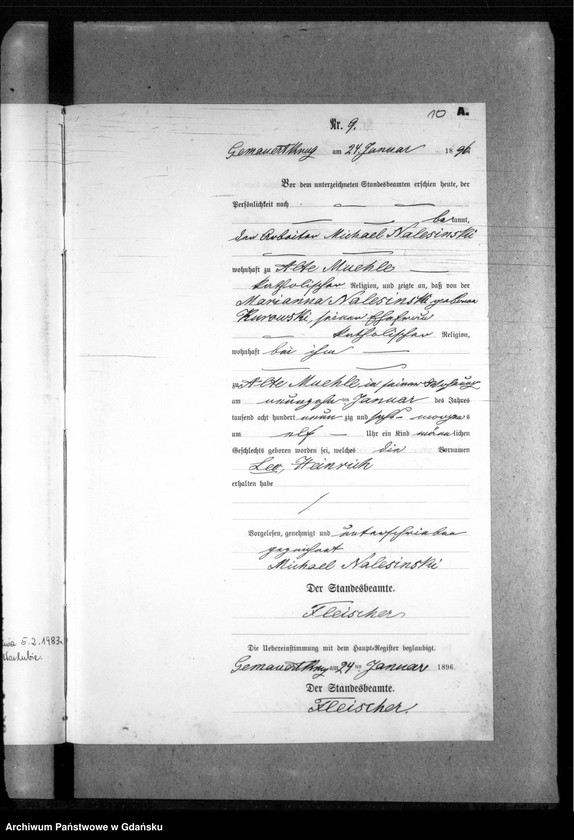 10 A.
Nr. 9.
Gemauert Krug am 24 Januar 1896.
Vor dem unterzeichneten Standesbeamten erschien heute, der
Persönlichkeit nach
bekannt,
der Arbeiter Michael Nalesinski
wohnhaft zu Alte Muehle
katholischer Religion, und zeigte an, daß von der
Marianna Nalesinski geborene
Kurowski, seiner Ehefrau
katholischer Religion,
wohnhaft bei ihm
zu Alte Muehle in seiner Wohnung
am neunzehnten Januar des Jahres
tausend acht hundert neun zig und sechs morgens
um elf Uhr ein Kind männlichen
Geschlechts geboren worden sei, welches die Vornamen
Leo, Heinrich
erhalten habe
Vorgelesen, genehmigt und unterschrieben
gezeichnet
Michael Nalesinski
Der Standesbeamte.
Fleischer
Die Uebereinstimmung mit dem Haupt-Register beglaubigt.
Gemauert Krug am 24ten Januar 1896.
Der Standesbeamte.
Fleischer.
5.2.1983
Archiwum Państwowe w Gdańsku